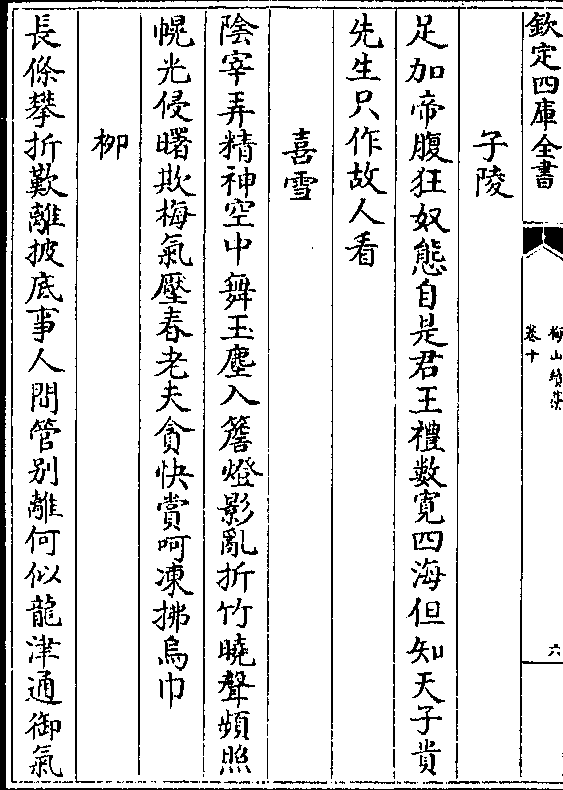 欽定四庫全書
梅山續藁
卷十
六
子陵
足加帝腹狂奴態自是君王禮數寬四海但知天子貴
先生只作故人看
喜雪
陰宰弄精神空中舞玉塵入簷燈影亂折竹曉聲頻照
幌光侵曙欺梅氣壓春老夫貪快賞呵凍拂烏巾
柳
長條攀折歎離披底事人間管别離何似龍津通御氣